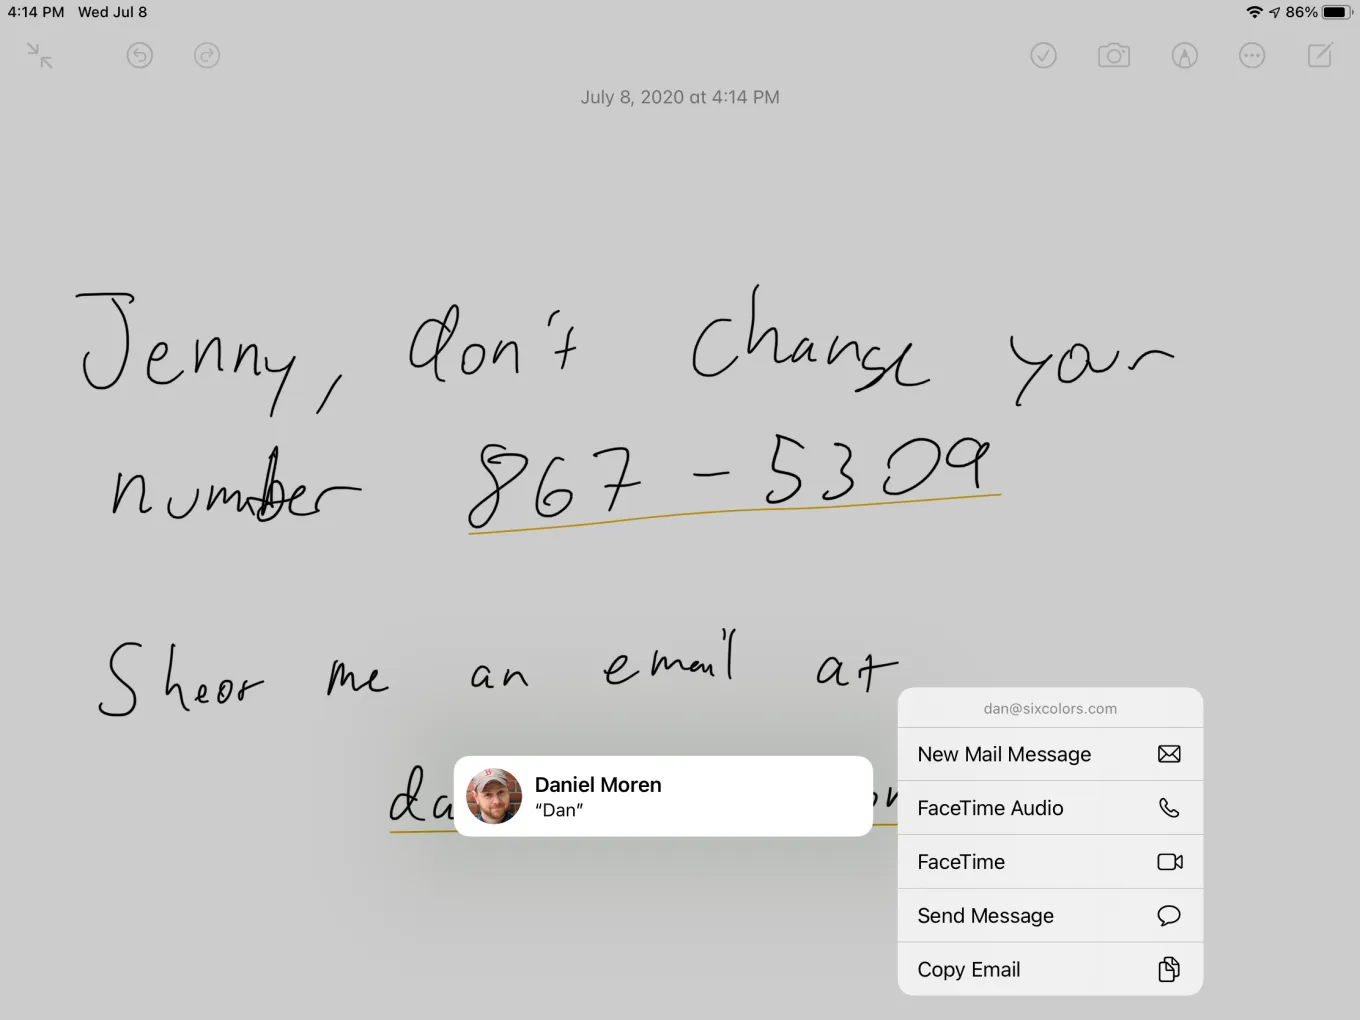 4:14 PM Wed Jul 8
86%
July 8, 2020 at 4:14 PM
Jenny, don't change your
number 867-5309
me an email at
dan@sixcolors.com
Daniel Moren
“Dan”
New Mail Message
FaceTime Audio
FaceTime
Send Message
Copy Email